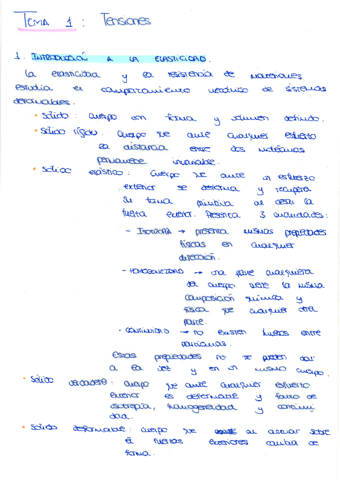 TEMA 1: Tensiones
1. INTRODUCCIÓN A LA ELASTICIDAD.
La elasticidad y la resistencia de materiales
estudia el comportamiento mecánico de sistemas
deformables.
• Sólido: cuerpo con forma y volumen definido.
• Sólido rígido: cuerpo que ante cualquier esfuerzo
la distancia entre dos moléculas
permanece invariable.
• Sólido elástico: cuerpo que ante un esfuerzo
exterior se deforma y recupera
su forma primitiva al cesar la
fuerza exterior. Presenta 3 cualidades:
- ISOTROPÍA → presenta mismas propiedades
físicas en cualquier
dirección.
- HOMOGENEIDAD → una parte cualquiera
del cuerpo tiene la misma
composición química y
física que cualquier otra
parte.
- CONTINUIDAD → no existen huecos entre
partículas.
Estas propiedades no se pueden dar
a la vez y en un mismo cuerpo.
• Sólido verdadero: cuerpo que ante cualquier esfuerzo
exterior es deformable y
isotropía, homogeneidad y continui
dad.
• Sólido deformable: cuerpo que al actuar sobre
él fuerzas exteriores cambia de
forma.